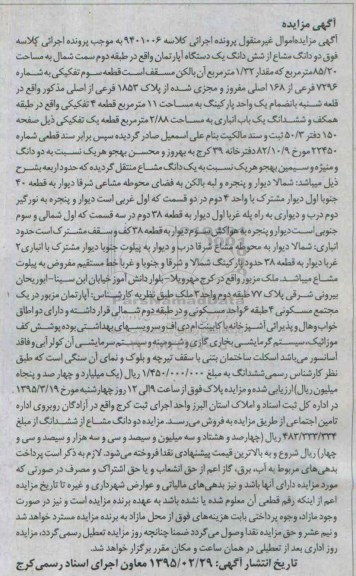 آگهی مزایده
آگهی مزایده اموال غیرمنقول پرونده اجرائی کلاسه ۹۴۰۱۰۰۶ به موجب پرونده اجرائی کلاسه
فوق دو دانگ مشاع از شش دانگ یک دستگاه آپارتمان واقع در طبقه دوم سمت شمال به مساحت
۸۵/۲۰ مترمربع که مقدار ۱/۳۲ مترمربع آن بالکن مسقف است قطعه سوم تفکیکی به شماره
۷۲۹۶ فرعی از ۱۶۸ اصلی مفروز و مجزی شده از پلاک ۱۸۵۳ فرعی از اصلی مذکور واقع در
قلعه شنبه بانضمام یک واحد پارکینگ به مساحت ۱۱ مترمربع قطعه ۴ تفکیکی واقع در طبقه
همکف و ششدانگ یک باب انباری به مساحت ۲/۸۸ مترمربع واقع قطعه یک تفکیکی ذیل صفحه
۱۵۰ دفتر ۵۰/۳ ثبت و سند مالکیت بنام علی اسمعیل صادر گردیده سپس برابر سند قطعی شماره
۲۲۴۵۰ مورخ ۸۲/۱۰/۹ دفترخانه ۳۹ کرج به بهروز و محسن بهجو هریک نسبت به دو دانگ
و منیژه و سیمین بهجو هریک نسبت به یک دانگ مشاع منتقل گردیده که حدود اربعه بشرح
ذیل میباشد: شمالا دیوار و پنجره و لبه بالکن به فضای محوطه مشاعی شرقا دیوار به قطعه ۴۰
جنوبا اول دیوار مشترک با واحد ۴ دوم در دو قسمت که اول غربی است دیوار و پنجره به نورگیر
دوم درب و دیواری به راه پله غربا اول دیوار به قطعه ۳۸ دوم در سه قسمت که اول شمالی و سوم
جنوبی است دیوار و پنجره به هواکش سوم دیوار به قطعه ۳۸ کف و سقف مشترک است حدود
انباری: شمالا دیوار به محوطه مشاع شرقا درب و دیوار به پیلوت جنوبا دیوار مشترک با انباری ۲
غربا دیوار به قطعه ۳۸ حدود پارکینگ شمالا و شرقا و جنوبا و غربا خط مستقیم مفروض به پیلوت
مشاع میباشد. ملک مزبور واقع در کرج مهرویلا- بلوار دانش آموز خیابان ابن سینا- ابوریحان
بیرونی شرقی پلاک ۷۷ طبقه دوم واحد ۳ ملک طبق نظریه کارشناس: آپارتمان مزبور در یک
مجتمع مسکونی ۴ طبقه ۶ واحد مسکونی و در طبقه دوم شمالی قرار داشته و دارای دو اطاق
خواب وهال و پذیرائی آشپزخانه با کابینت ام دی اف و سرویسهای بهداشتی بوده پوشش کف
موزائیک، سیستم گرمایشی بخاری گازی و شومینه و سیستم سرمایشی آن کولر آبی و فاقد
آسانسور می‌باشد اسکلت ساختمان بتنی با سقف تیرچه و بلوک و نمای آن سنگی است که طبق
نظر کارشناس رسمی ششدانگ به مبلغ ۱/۴۵۰/۰۰۰/۰۰۰ ریال (یک میلیارد و چهار صد و پنجاه
میلیون ریال) ارزیابی شده و مزایده پلاک فوق از ساعت ۹ الی ۱۲ روز چهارشنبه مورخ ۱۳۹۵/۳/۱۹
در اداره کل ثبت اسناد و املاک استان البرز واحد اجرای ثبت کرج واقع در آزادگان روبروی اداره
تامین اجتماعی از طریق مزایده به فروش می‌رسد. مزایده دو دانگ مشاع از ششدانگ از مبلغ
۴۸۳/۳۳۳/۳۳۴ ریال (چهارصد و هشتاد و سه میلیون و سیصد و سی و سه هزار و سیصد و سی و
چهار) ریال شروع و به بالاترین قیمت پیشنهادی نقدا فروخته می‌شود. لازم به ذکر است پرداخت
بدهی‌های مربوط به آب، برق، گاز اعم از حق انشعاب و یا حق اشتراک و مصرف در صورتی که
مورد مزایده دارای آنها باشد و نیز بدهی‌های مالیاتی و عوارض شهرداری و غیره تا تاریخ مزایده
اعم از اینکه رقم قطعی آن معلوم شده یا نشده باشد به عهده برنده مزایده است و نیز در صورت
وجود مازاد، وجوه پرداختی بابت هزینه‌های فوق از محل مازاد به برنده مزایده مسترد خواهد شد
و نیم عشر و حق مزایده نقدا وصول می‌گردد ضمنا چنانچه روز مزایده تعطیل رسمی گردد، مزایده
روز اداری بعد از تعطیلی در همان ساعت و مکان مقرر برگزار خواهد شد.
تاریخ انتشار آگهی: ۱۳۹۵/۰۲/۲۹ معاون اجرای اسناد رسمی کرج